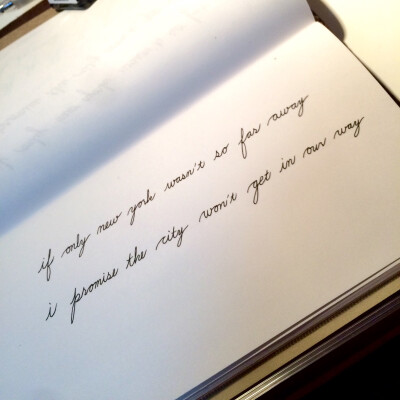 if only new york wasn't so far away
i promise the city won't get in our way